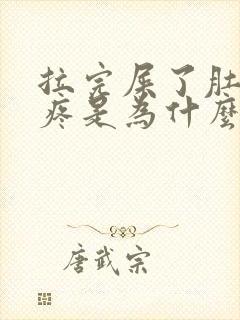 拉完屎了肚
疼是為什麼
唐武宗